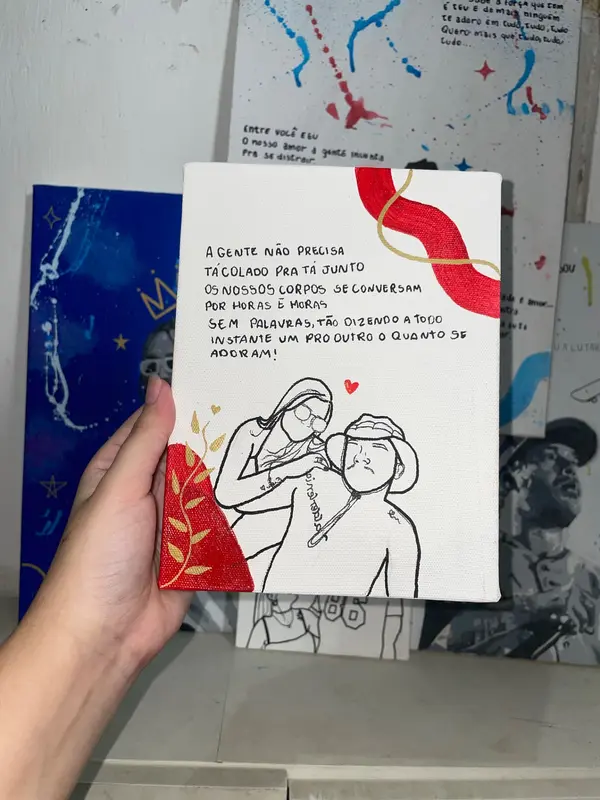 É TEU E de mais ninguém
te adoro em tudo, tudo, tudo
Quero mais que tudo, tudo,
tudo...
Entre VOCÊ E EU
O nosso amor a gente inventa
Pra se distrair
A GENTE NÃO PRECISA
TÁ COLADO PRA TÁ JUNTO
OS NOSSOS CORPOS SE CONVERSAM
POR HORAS E HORAS
SEM PALAVRAS, TÃO DIZENDO A TODO
INSTANTE UM PRO OUTRO O QUANTO SE
ADORAM!
86